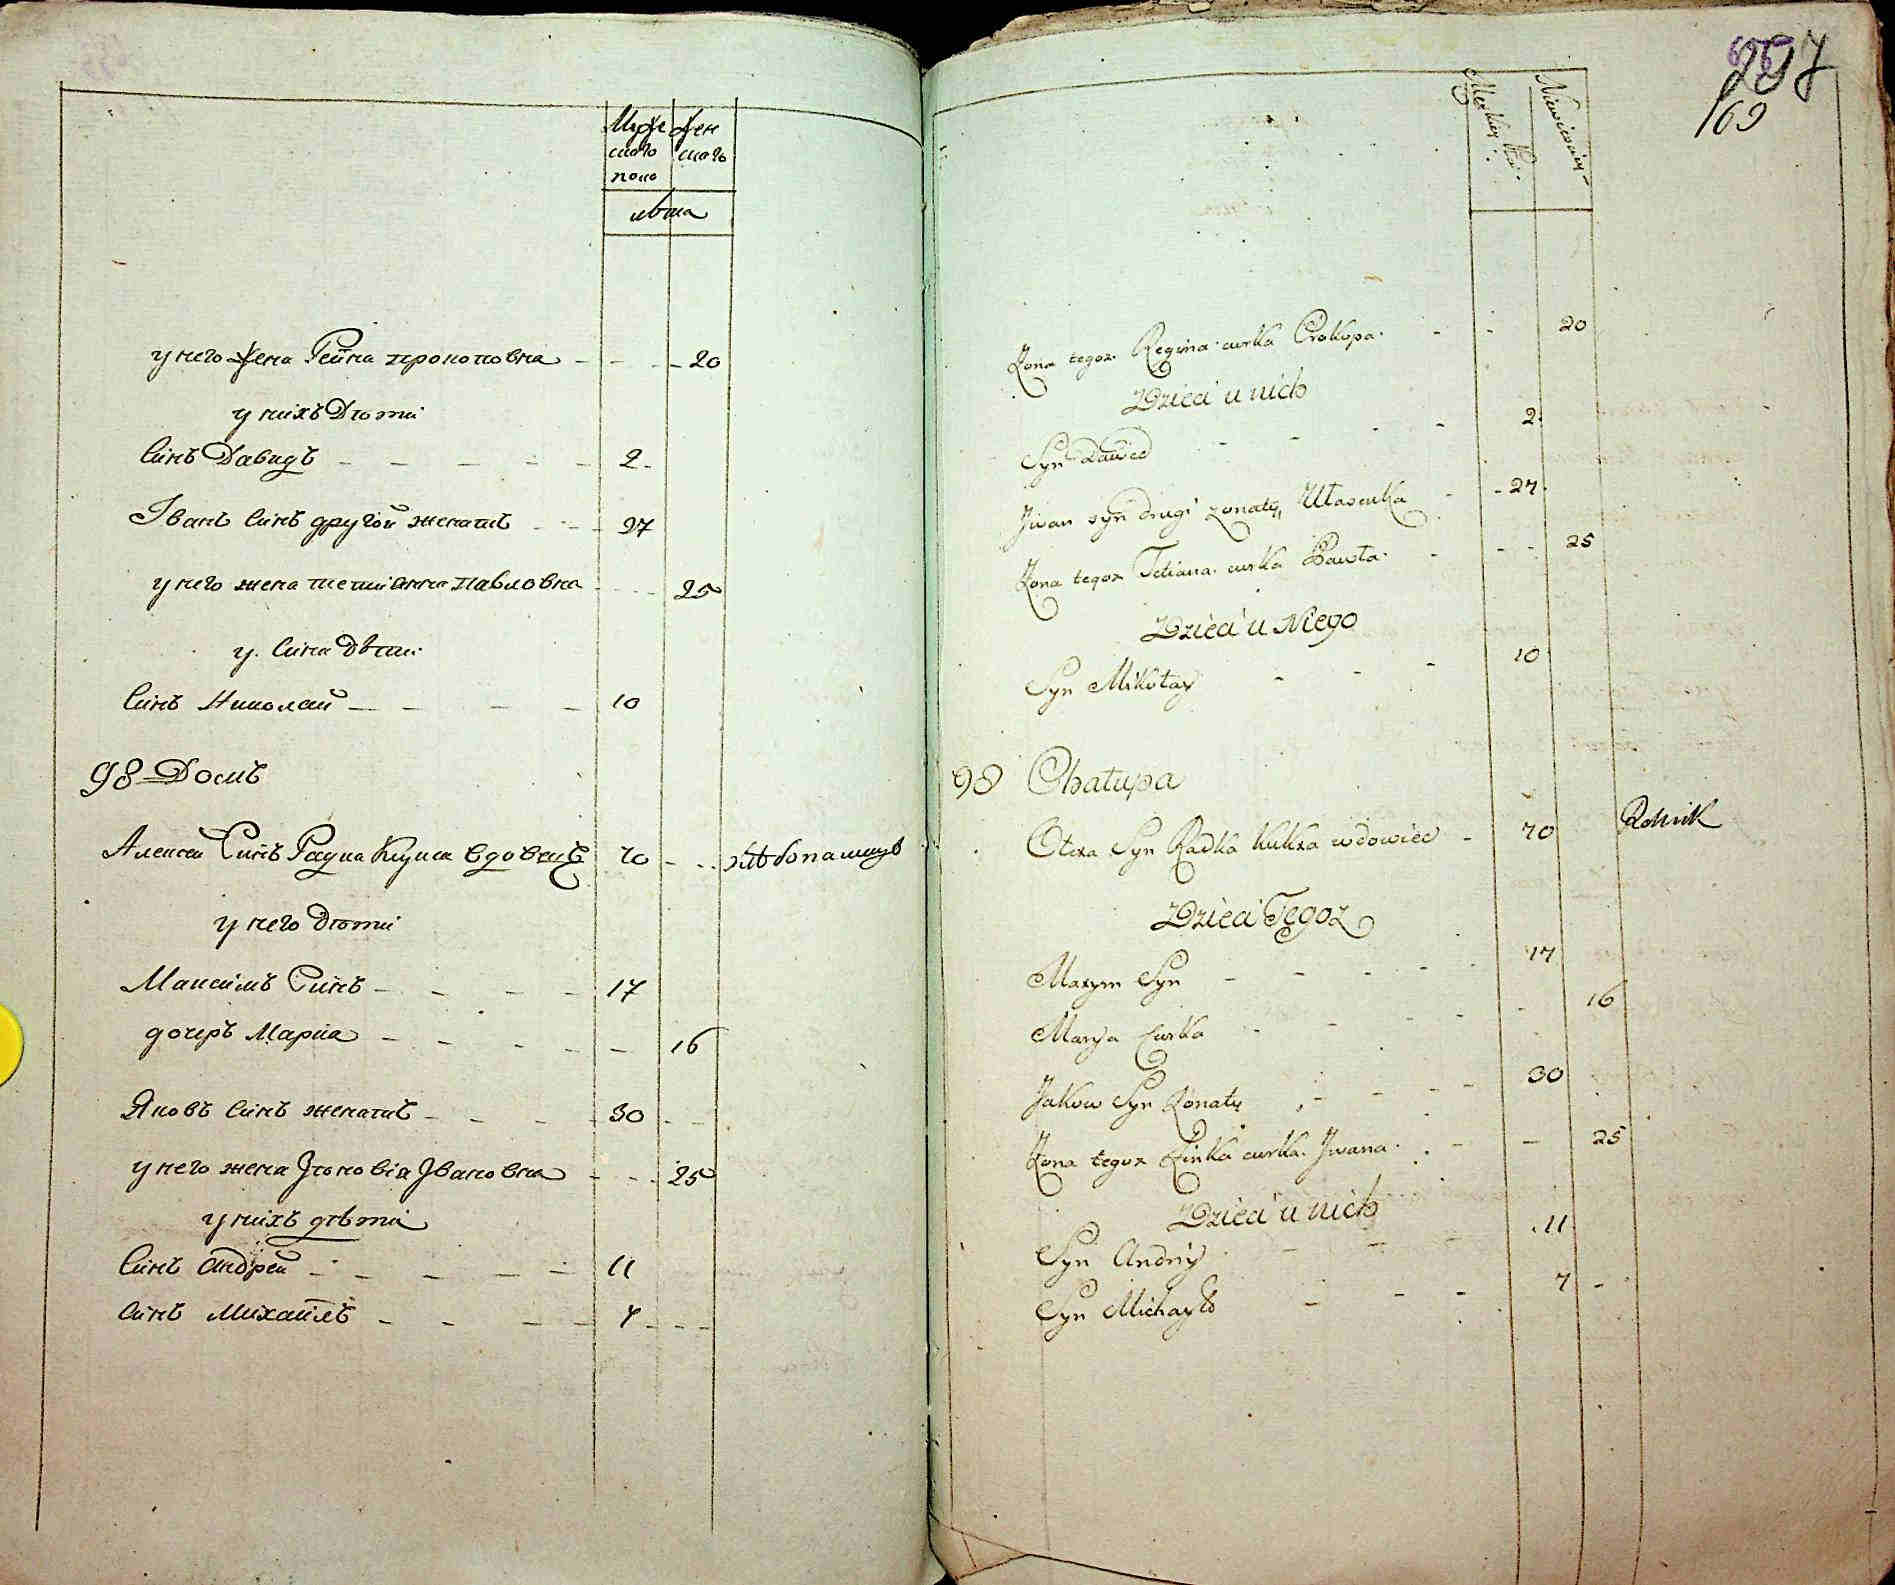 Муже Жен
скаго скаго
пола
лѣта
у него жена Реина прокоповна - - - 20
у нихъ Дѣти
Синъ Давидъ - - - - - 2
Іванъ Синъ другой женатъ - - - 27
у него жена татианна павловна - - - 25
у Сина Дѣти
Синъ Николай - - - - 10
98 Домъ
Алексей Синъ Радка Кукса вдовецъ 70 - - хлѣбопашецъ
у него Дѣти
Максимъ Синъ - - - - 17
дочеръ Мариа - - - - - 16
Яковъ Синъ женатъ - - - - 30 - -
у него жена Івановна - - - 25
у нихъ дѣти
Синъ Андрей - - - - - 11
Синъ Михаилъ - - - - 7 - - -
297
169
Męskiey Niewiesciey
Zona tegoz Regina curka Prokopa - - 20
Dzieci u nich
Syn Dawid - - - - 2
Jwan syn drugi zonaty - - 27
Zona tegoz Tetiana curka Pawła - - - 25
Dzieci u Niego
Syn Mikołay - - - 10
98 Chałupa
Olexa Syn Radka Kuksa wdowiec - 70 Rolnik
Dzieci Tegoz
Maxym Syn - - - - - 17
Marya Curka - - - - - 16
Jakow Syn Zonaty - - - - 30
Zona tegoz Zinka curka Jwana - - 25
Dzieci u nich
Syn Andriy - - - 11
Syn Michayło - - - 7 -